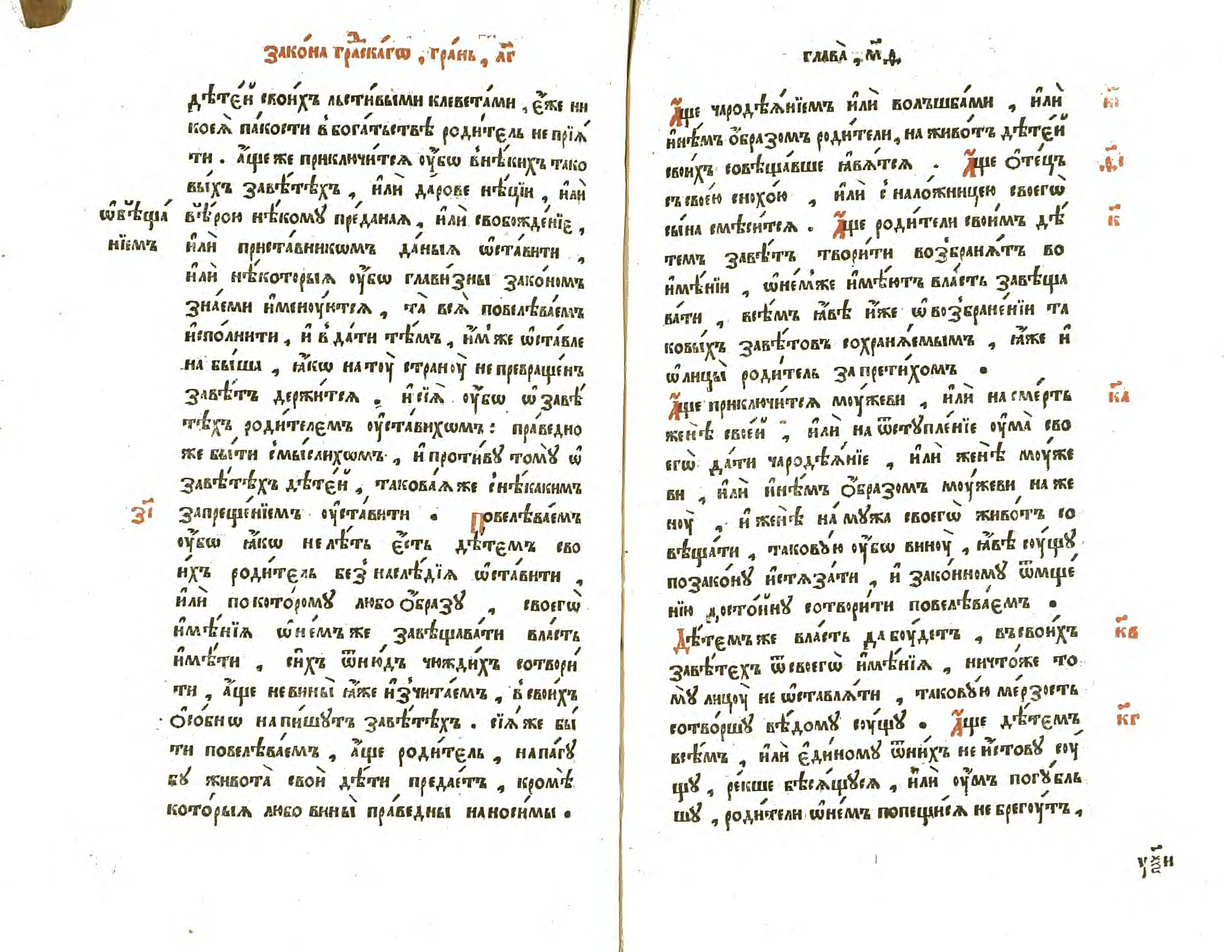 зако́на гра́дскагѡ , гра́нь , л҃г
дѣте́й свои́хъ льсти́выми клевета́ми , є҆́же ни
коеѧ̀ па́кости в̾бога́тьствѣ роди́тель не прїѧ́
ти . а҆́ще же приключи́тсѧ ᲂу҆́бѡ в̾нѣ́кихъ тако
вы́хъ завѣ́тѣхъ , и҆лѝ да́рове нѣ́цїи , и҆лѝ
ѡ҆бѣща́
в̾ѣ́рою нѣ́кому пре́даннаѧ , и҆лѝ свобожде́нїе ,
нїемъ
и҆лѝ приста́вникѡмъ да́ныѧ ѡ҆ста́вити ,
и҆лѝ нѣ́которыѧ ᲂу҆́бѡ глави́зны зако́номъ
зна́еми и҆мену́ютсѧ , та̀ всѧ̀ повелѣва́емъ
и҆спо́лнити , и҆ в̾да́ти тѣ́мъ , и҆̀мже ѡ҆ста́вле
на бы́ша , ꙗ҆́кѡ на тоу̀ страноу̀ не превраще́нъ
завѣ́тъ держи́тсѧ . и҆ сїѧ̀ ᲂу҆́бѡ ѡ҆ завѣ́
тѣхъ роди́телемъ ᲂу҆ста́вихѡмъ : пра́ведно
же бы́ти смы́слихѡмъ , и҆ проти́вꙋ томꙋ̀ ѡ҆
завѣ́тѣхъ дѣте́й , такова́ѧже с̾нѣ́какимъ
з҃і
запреще́нїемъ ᲂу҆ста́вити . Повелѣва́емъ
ᲂу҆́бѡ ꙗ҆́кѡ не лѣ́ть є҆́сть дѣ́темъ сво
и́хъ роди́тель без̾ наслѣ́дїѧ ѡ҆ста́вити ,
и҆лѝ по кото́рому любо ѻ҆́бразꙋ , своегѡ̀
и҆мѣ́нїѧ ѡ҆ не́мъ же завѣщава́ти вла́сть
и҆мѣ́ти , си́хъ ѿню́дъ чюжди́хъ сотвори́
ти , а҆́ще не вины̀ ꙗ҆̀же и҆зчита́емъ , в̾ свои́хъ
ѻ҆со́бнѡ напи́шутъ завѣ́тѣхъ . сїѧ́же бы́
ти повелѣва́емъ , а҆́ще роди́тель , на па́гꙋ
бꙋ живота̀ своѝ дѣ́ти преда́стъ , кромѣ̀
кото́рыѧ любо вины̀ пра́ведны наноси́мы .
глава̀ , м҃д ,
А҆́ще чародѣѧ́нїемъ и҆лѝ волъшба́ми , и҆лѝ
и҃і
и҆нѣ́мъ ѻ҆́бразомъ роди́тели , на живо́тъ дѣте́й
свои́хъ совѣща́вше ꙗ҆вѧ́тсѧ . А҆́ще ѻ҆те́цъ
ѳ҃і
съ свое́ю снохо́ю , и҆лѝ с̾ нало́жницею своегѡ̀
сы́на смѣ́ситсѧ . А҆́ще роди́тели свои́мъ дѣ́
к҃
темъ завѣ́тъ твори́ти возбранѧ́тъ во
и҆мѣ́нїи , ѡ҆ не́мже и҆мѣ́ютъ вла́сть завѣща
ва́ти , всѣ́мъ ꙗ҆́вѣ и҆̀же ѡ҆ возбране́нїи та
ковы́хъ завѣ́товъ сохранѧ́емымъ , ꙗ҆̀же и҆
ѡ҆ лицы̀ роди́тель запрети́хомъ .
А҆́ще приключи́тсѧ моу́жеви , и҆лѝ на сме́рть
к҃а
женѣ̀ свое́й , и҆лѝ на ѿступле́нїе ᲂу҆ма̀ сво
егѡ̀ да́ти чародѣѧ́нїе , и҆лѝ женѣ̀ моу́же
ви , и҆лѝ и҆нѣ́мъ ѻ҆́бразомъ моу́жеви на же
ноу̀ , и҆ женѣ̀ на мꙋ́жа своегѡ̀ живо́тъ со
вѣща́ти , такову́ю ᲂу҆́бѡ виноу̀ , ꙗ҆́вѣ соу́щꙋ
по зако́нꙋ и҆стѧза́ти , и҆ зако́нномꙋ ѿмще́
нїю досто́йнꙋ сотвори́ти повелѣва́емъ .
Дѣ́темъ же вла́сть да боу́детъ , въ свои́хъ
к҃в
завѣ́тѣхъ ѿ своегѡ̀ и҆мѣ́нїѧ , ничто́же то
мꙋ̀ лицоу̀ не ѡ҆ставлѧ́ти , такову́ю ме́рзость
сотво́ршꙋ вѣ́домꙋ соу́щꙋ . А҆́ще дѣ́темъ
к҃г
всѣ́мъ , и҆лѝ є҆ди́номꙋ ѿ ни́хъ не и҆́стовꙋ соу́
щꙋ , ре́кше бѣсѧ́щꙋсѧ , и҆лѝ ᲂу҆́мъ погꙋ́бль
шꙋ , роди́тели ѡ҆ не́мъ попещи́сѧ не брегоу́тъ ,